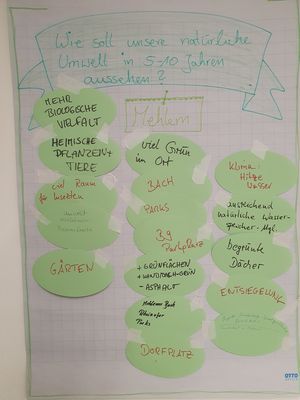 Wie soll unsere natürliche
Umwelt in 5-10 Jahren
aussehen?
Mehlem
MEHR
BIOLOGISCHE
VIELFALT
HEIMISCHE
PFLANZEN +
TIERE
viel Raum
für Insekten
GÄRTEN
viel Grün
im Ort
BACH
PARKS
B9
Parkplätze
+ GRÜNFLÄCHEN
- ASPHALT
Mehlemer Bach
Rheinufer
Parks
DORFPLATZ
Klima:
Hitze
Wasser
ausreichend
natürliche Wasser-
speicher-Mgl.
begrünte
Dächer
ENTSIEGELUNG
OTTO